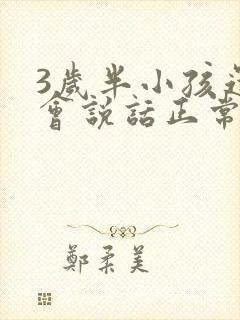 3歲半小孩
會說話正常
鄭柔美